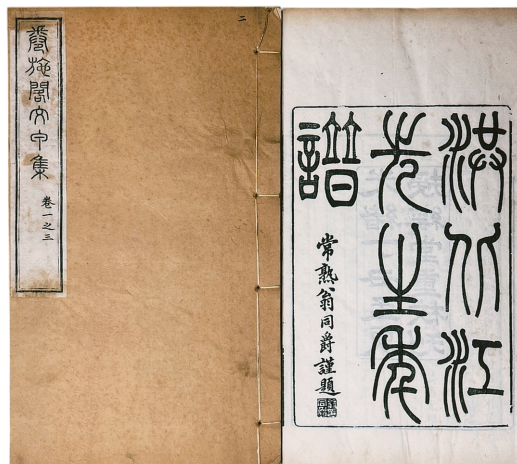 卷施閣文甲集 卷一之三
二
洪北江
先生年
譜
常熟翁同爵謹題